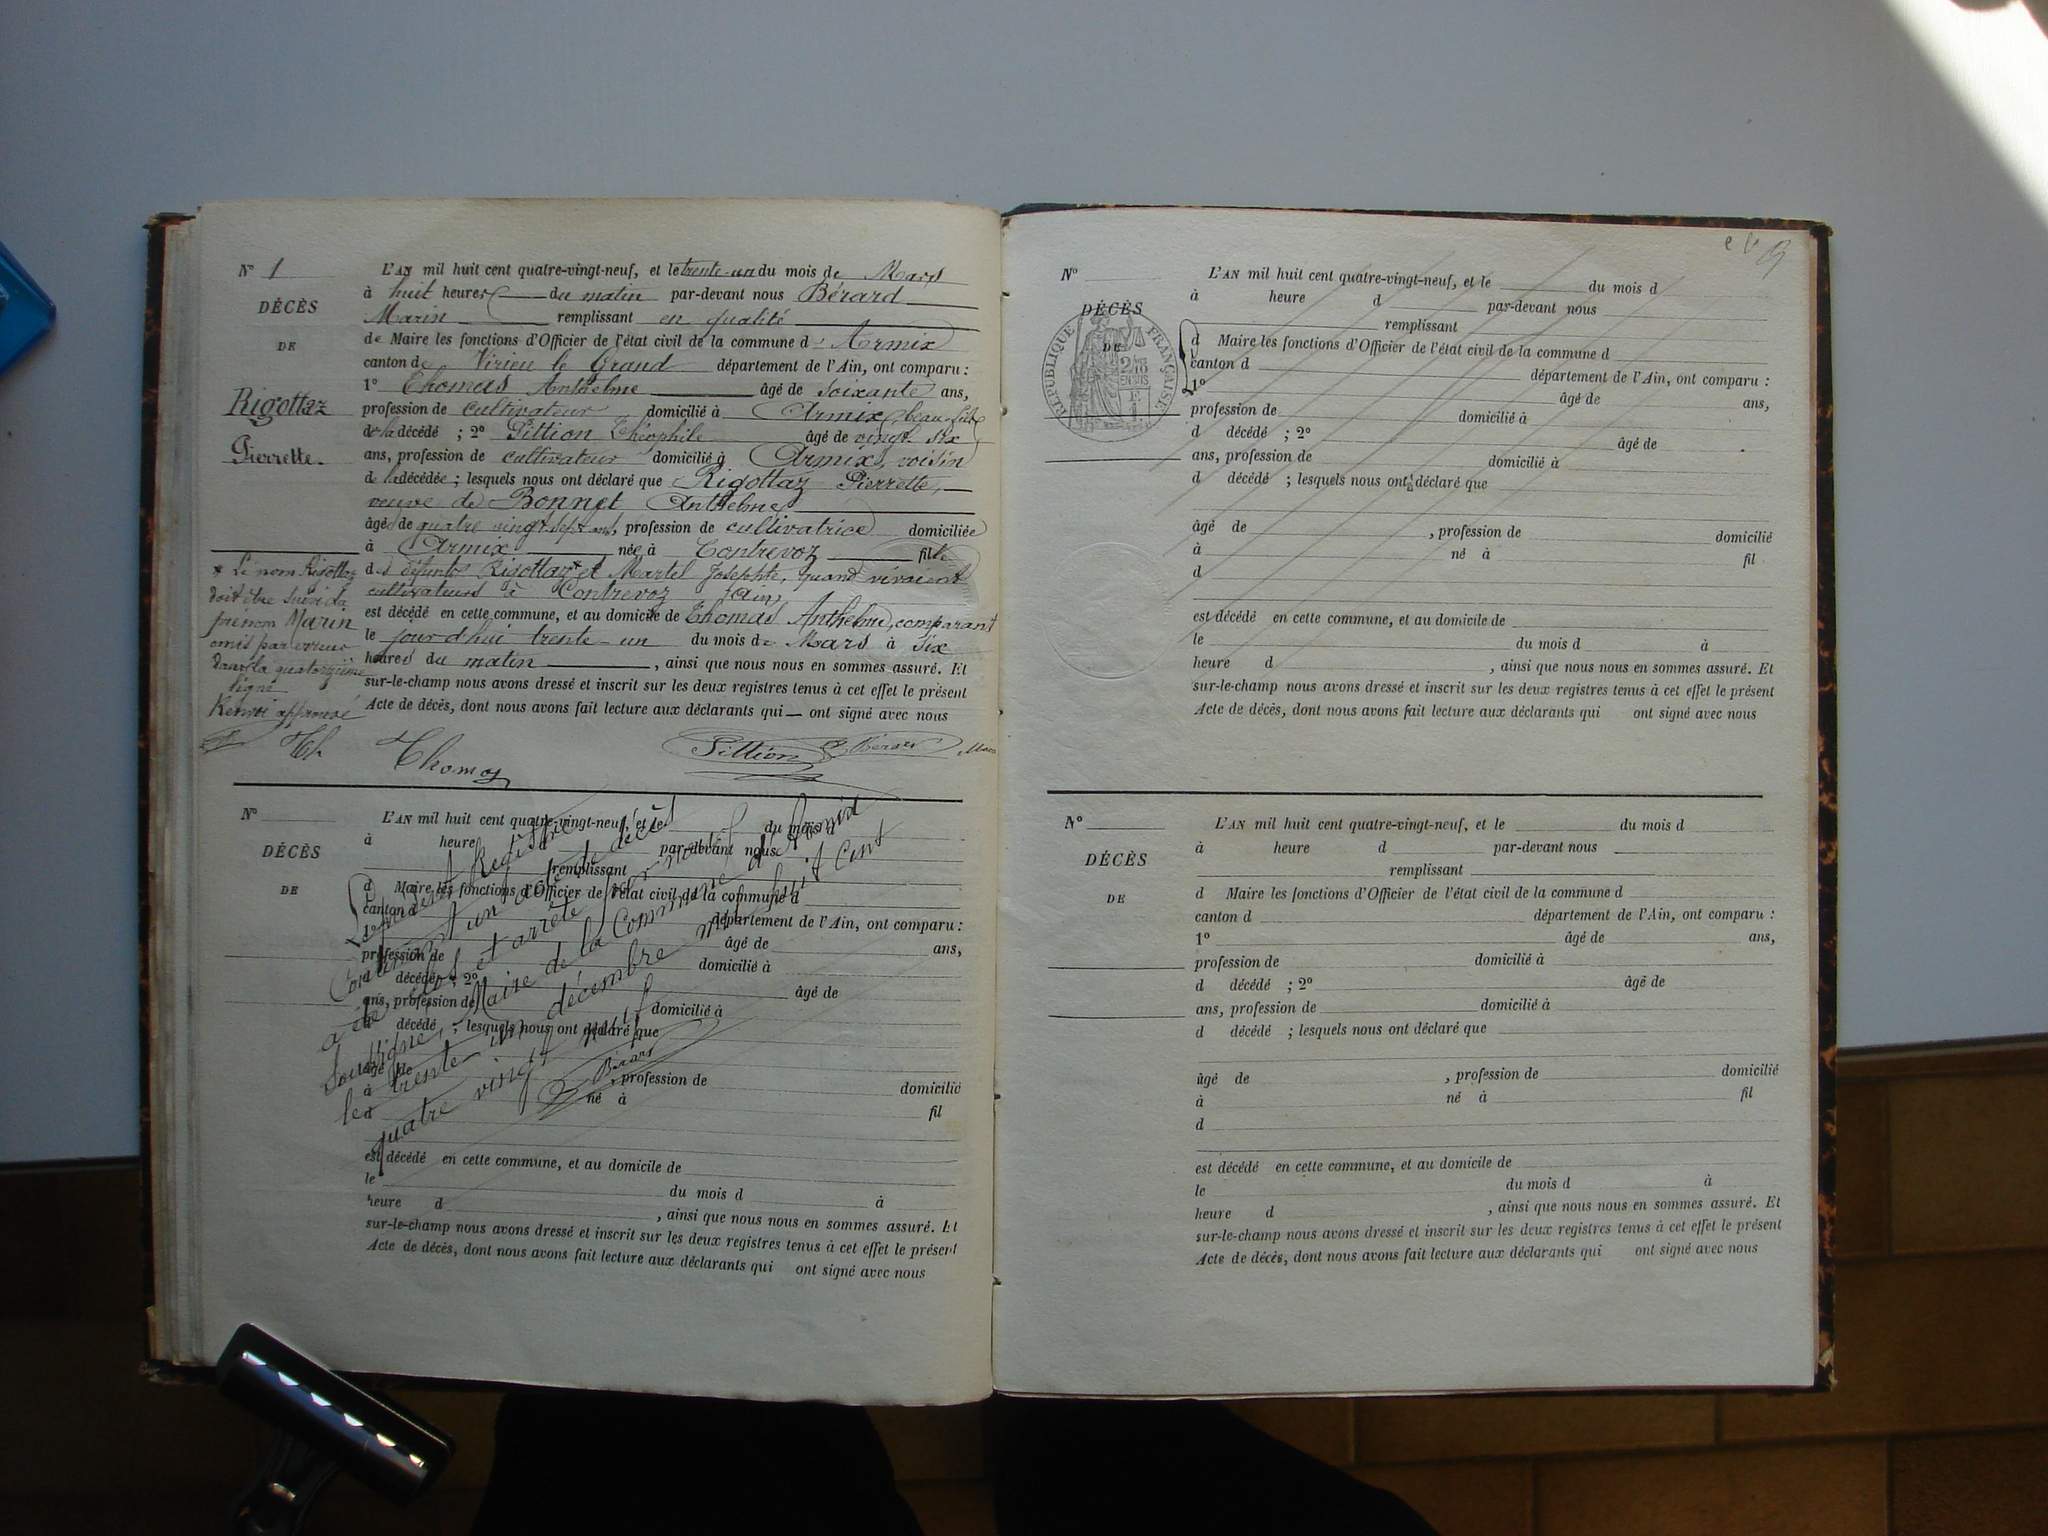 N° 1
DÉCÈS
DE
Rigottaz
Pierrette.
L'AN mil huit cent quatre-vingt-neuf, et le trente-un du mois de Mars
à huit heures du matin par-devant nous Bérard
Marin remplissant en qualité
de Maire les fonctions d'Officier de l'état civil de la commune d'Armix
canton de Virieu le Grand département de l'Ain, ont comparu :
1° Thomas Anthelme âgé de soixante ans,
profession de cultivateur domicilié à Armix, beau-fils
de la décédé ; 2° Pittion Théophile âgé de vingt six
ans, profession de cultivateur domicilié à Armix, voisin
de la décédée ; lesquels nous ont déclaré que Rigottaz Pierrette,
veuve de Bonnet Anthelme
âgée de quatre vingt sept ans, profession de cultivatrice domiciliée
à Armix née à Contrevoz fille
des défunts Rigottaz* et Martel Josephte, quand vivaient
cultivateurs à Contrevoz (Ain)
est décédé en cette commune, et au domicile de Thomas Anthelme, comparant
le jour d'hui trente-un du mois de Mars à six
heures du matin , ainsi que nous nous en sommes assuré. Et
sur-le-champ nous avons dressé et inscrit sur les deux registres tenus à cet effet le présent
Acte de décès, dont nous avons fait lecture aux déclarants qui ont signé avec nous
* Le nom Rigottaz
doit être suivi du
prénom Marin
omis par erreur
dans la quatorzième
ligne
Renvoi approuvé
Th Thomas Pittion Bérard
N°
DÉCÈS
DE
L'AN mil huit cent quatre-vingt-neuf, et le du mois d
à heure d par-devant nous
remplissant
d Maire les fonctions d'Officier de l'état civil de la commune d
canton d département de l'Ain, ont comparu :
âgé de ans,
profession de domicilié à
d décédé ; 2° âgé de
ans, profession de domicilié à
d décédé ; lesquels nous ont déclaré que
âgé de , profession de domicilié
à né à fil
d
est décédé en cette commune, et au domicile de
le du mois d à
heure d , ainsi que nous nous en sommes assuré. Et
sur-le-champ nous avons dressé et inscrit sur les deux registres tenus à cet effet le présent
Acte de décès, dont nous avons fait lecture aux déclarants qui ont signé avec nous
Le présent Registre
Contenant un acte de décès
a été clos et arrêté par nous
soussigné, Maire de la Commune d'Armix
le trente un décembre mil huit cent
quatre vingt neuf
Bérard
N°
DÉCÈS
DE
RÉPUBLIQUE FRANÇAISE
L'AN mil huit cent quatre-vingt-neuf, et le du mois d
à heure d par-devant nous
remplissant
d Maire les fonctions d'Officier de l'état civil de la commune d
canton d département de l'Ain, ont comparu :
1° âgé de ans,
profession de domicilié à
d décédé ; 2° âgé de
ans, profession de domicilié à
d décédé ; lesquels nous ont déclaré que
âgé de , profession de domicilié
à né à fil
d
est décédé en cette commune, et au domicile de
le du mois d à
heure d , ainsi que nous nous en sommes assuré. Et
sur-le-champ nous avons dressé et inscrit sur les deux registres tenus à cet effet le présent
Acte de décès, dont nous avons fait lecture aux déclarants qui ont signé avec nous
N°
DÉCÈS
DE
L'AN mil huit cent quatre-vingt-neuf, et le du mois d
à heure d par-devant nous
remplissant
d Maire les fonctions d'Officier de l'état civil de la commune d
canton d département de l'Ain, ont comparu :
1° âgé de ans,
profession de domicilié à
d décédé ; 2° âgé de
ans, profession de domicilié à
d décédé ; lesquels nous ont déclaré que
âgé de , profession de domicilié
à né à fil
d
est décédé en cette commune, et au domicile de
le du mois d à
heure d , ainsi que nous nous en sommes assuré. Et
sur-le-champ nous avons dressé et inscrit sur les deux registres tenus à cet effet le présent
Acte de décès, dont nous avons fait lecture aux déclarants qui ont signé avec nous